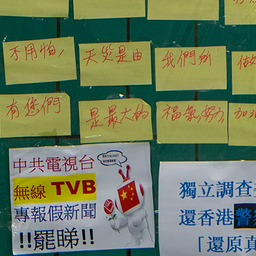 不用怕,
天災是由
我們所
有您們
是最大的
福氣,努力
加
中共電視台
無線 TVB
專報假新聞
!!罷睇!!
獨立調查
還香港警
「還原真